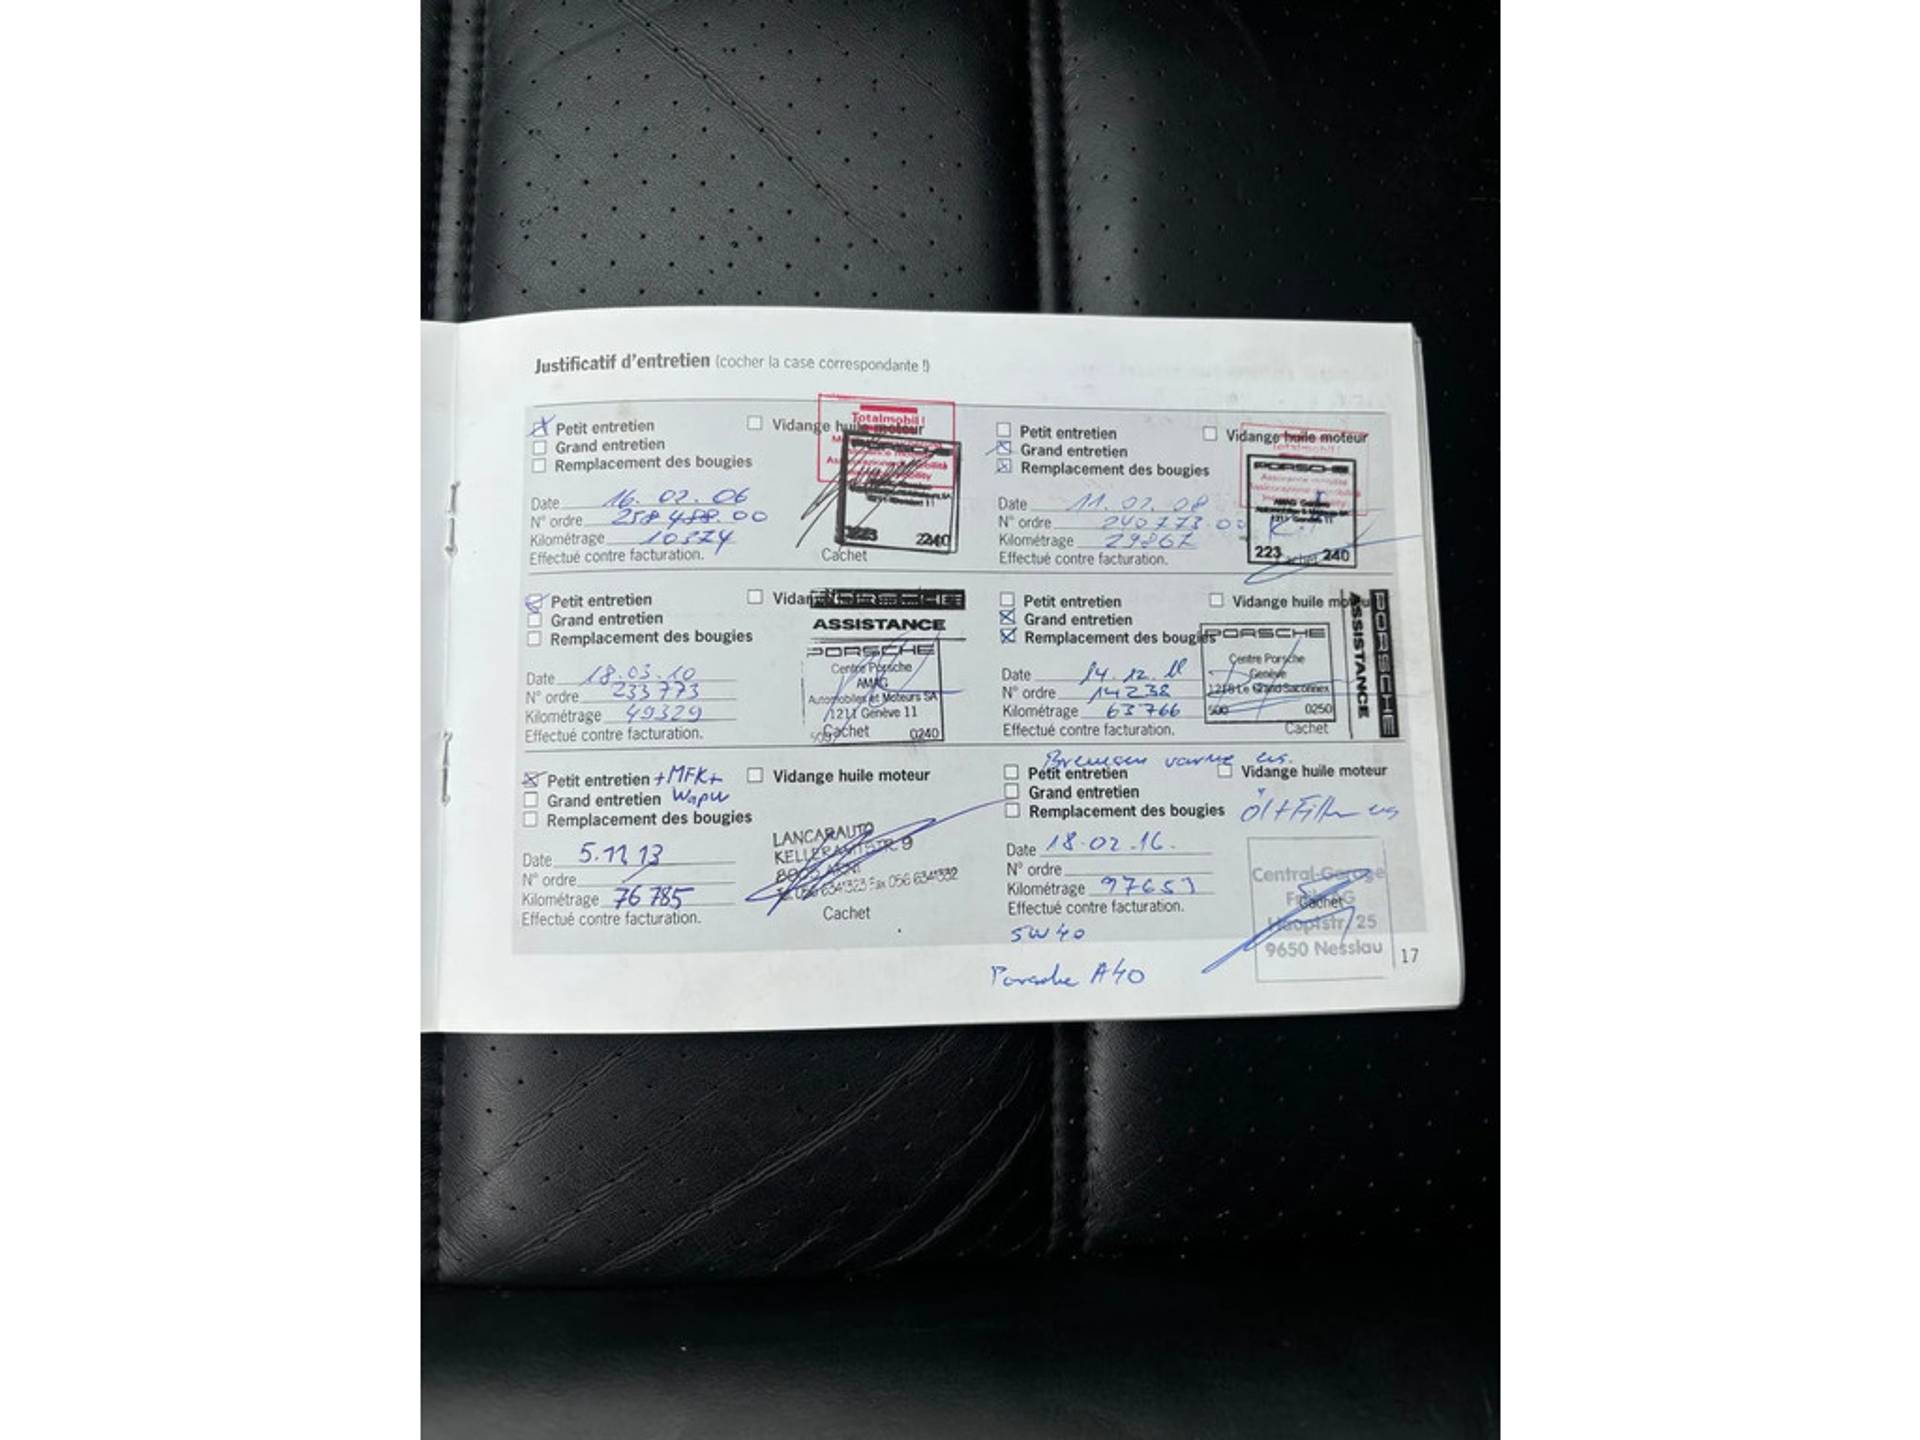 Justificatif d'entretien (cocher la case correspondante !)
Petit entretien
Vidange huile moteur
Grand entretien
Remplacement des bougies
Date 16.02.06
N° ordre
Kilométrage 10374
Effectué contre facturation.
Totalmobil!
PORSCHE
223 240
Cachet
Petit entretien
Vidange huile moteur
Grand entretien
Remplacement des bougies
Date 11.02.08
N° ordre 240773.00
Kilométrage 29867
Effectué contre facturation.
PORSCHE
1211 Genève 11
223 240
Cachet
Petit entretien
Grand entretien
Remplacement des bougies
Date 18.03.10
N° ordre 233773
Kilométrage 49329
Effectué contre facturation.
PORSCHE
ASSISTANCE
PORSCHE
Centre Porsche
AMAG
Automobiles et Moteurs SA
1211 Genève 11
Cachet 0240
Petit entretien
Vidange huile moteur
Grand entretien
Remplacement des bougies
Date 14.12.11
N° ordre 14238
Kilométrage 63766
Effectué contre facturation.
PORSCHE
Centre Porsche
Genève
1218 Le Grand-Saconnex
500 0250
Cachet
PORSCHE
ASSISTANCE
Petit entretien +MFK+
Vidange huile moteur
Grand entretien Wapu
Remplacement des bougies
Date 5.11.13
N° ordre
Kilométrage 76785
Effectué contre facturation.
LANCARAUTO
Fax 056 6341332
Cachet
Bremsen vorne ers.
Petit entretien
Vidange huile moteur
Grand entretien
Remplacement des bougies
Öl+Filter ers
Date 18.02.16.
N° ordre
Kilométrage 97653
Effectué contre facturation.
Central-Garage
Cachet
Hauptstr. 25
9650 Nesslau
5W40
Porsche A40
17